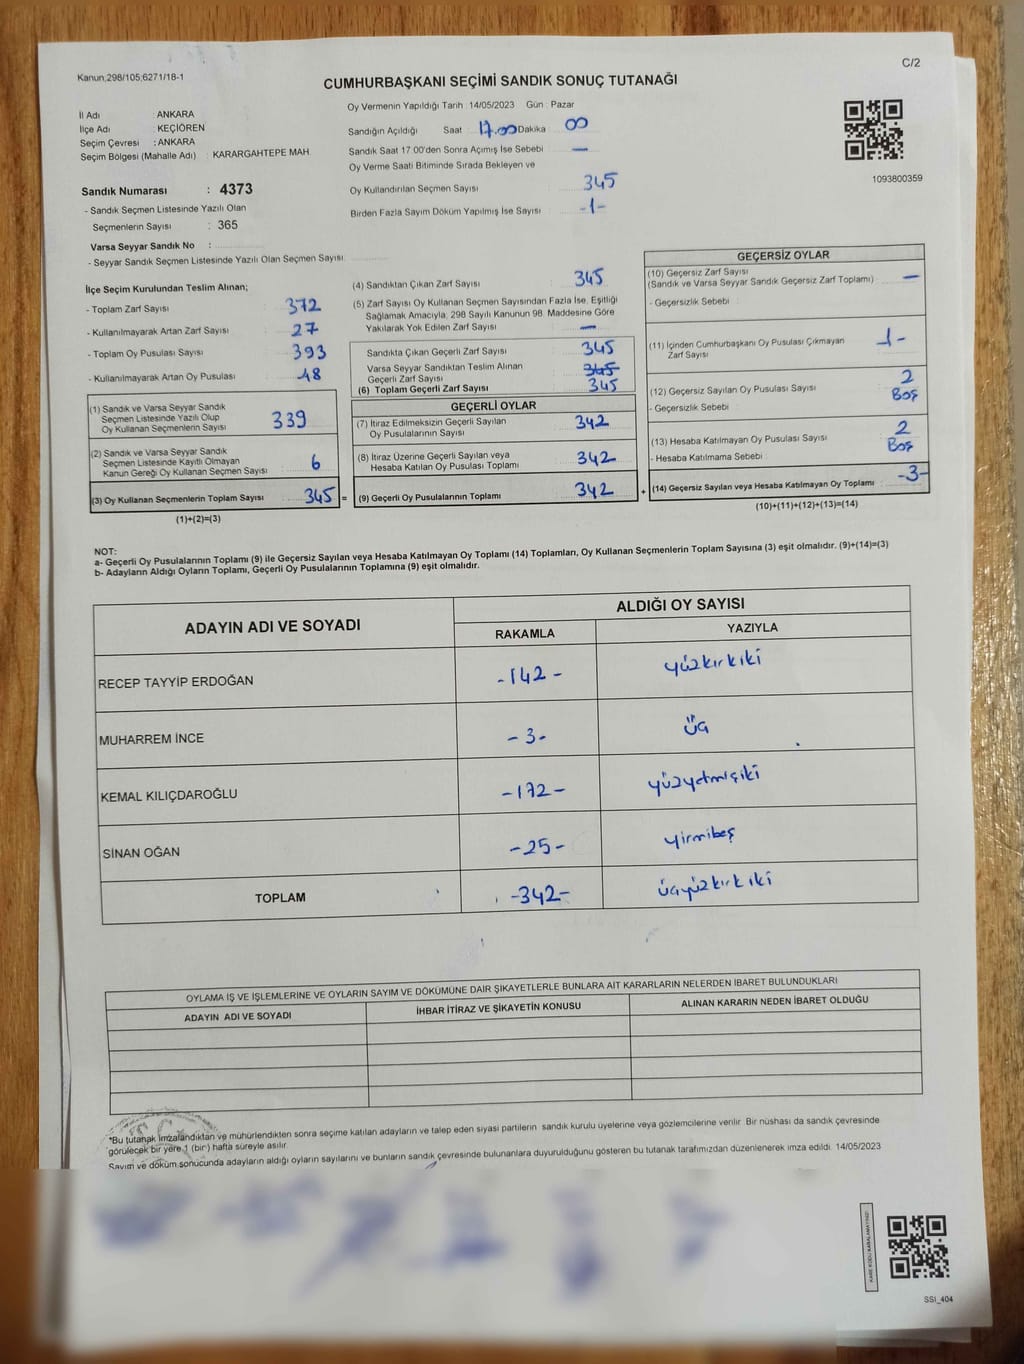 Kanun,298/105;6271/18-1
C/2
CUMHURBAŞKANI SEÇİMİ SANDIK SONUÇ TUTANAĞI
Oy Vermenin Yapıldığı Tarih :14/05/2023 Gün : Pazar
İl Adı ANKARA
İlçe Adı : KEÇİÖREN
Seçim Çevresi : ANKARA
Seçim Bölgesi (Mahalle Adı) : KARARGAHTEPE MAH.
Sandık Numarası : 4373
- Sandık Seçmen Listesinde Yazılı Olan
Seçmenlerin Sayısı : 365
Varsa Seyyar Sandık No :
- Seyyar Sandık Seçmen Listesinde Yazılı Olan Seçmen Sayısı:
Sandığın Açıldığı Saat : 17.00 Dakika : 00
Sandık Saat 17:00'den Sonra Açımış İse Sebebi : —
Oy Verme Saati Bitiminde Sırada Bekleyen ve
Oy Kullandırılan Seçmen Sayısı : 345
Birden Fazla Sayım Döküm Yapılmış İse Sayısı : -1-
1093800359
İlçe Seçim Kurulundan Teslim Alınan;
- Toplam Zarf Sayısı : 372
- Kullanılmayarak Artan Zarf Sayısı : 27
- Toplam Oy Pusulası Sayısı : 393
- Kullanılmayarak Artan Oy Pusulası : 48
(1) Sandık ve Varsa Seyyar Sandık
Seçmen Listesinde Yazılı Olup
Oy Kullanan Seçmenlerin Sayısı : 339
(2) Sandık ve Varsa Seyyar Sandık
Seçmen Listesinde Kayıtlı Olmayan
Kanun Gereği Oy Kullanan Seçmen Sayısı : 6
(3) Oy Kullanan Seçmenlerin Toplam Sayısı : 345 =
(1)+(2)=(3)
(4) Sandıktan Çıkan Zarf Sayısı : 345
(5) Zarf Sayısı Oy Kullanan Seçmen Sayısından Fazla İse, Eşitliği
Sağlamak Amacıyla, 298 Sayılı Kanunun 98. Maddesine Göre
Yakılarak Yok Edilen Zarf Sayısı : —
Sandıkta Çıkan Geçerli Zarf Sayısı : 345
Varsa Seyyar Sandıktan Teslim Alınan
Geçerli Zarf Sayısı : 345
(6) Toplam Geçerli Zarf Sayısı : 345
GEÇERLİ OYLAR
(7) İtiraz Edilmeksizin Geçerli Sayılan
Oy Pusulalarının Sayısı : 342
(8) İtiraz Üzerine Geçerli Sayılan veya
Hesaba Katılan Oy Pusulası Toplamı : 342
(9) Geçerli Oy Pusulalarının Toplamı : 342 +
GEÇERSİZ OYLAR
(10) Geçersiz Zarf Sayısı
(Sandık ve Varsa Seyyar Sandık Geçersiz Zarf Toplamı) : —
- Geçersizlik Sebebi :
(11) İçinden Cumhurbaşkanı Oy Pusulası Çıkmayan
Zarf Sayısı : 1-
(12) Geçersiz Sayılan Oy Pusulası Sayısı : 2
- Geçersizlik Sebebi : Boş
(13) Hesaba Katılmayan Oy Pusulası Sayısı : 2
- Hesaba Katılmama Sebebi : Boş
(14) Geçersiz Sayılan veya Hesaba Katılmayan Oy Toplamı : -3-
(10)+(11)+(12)+(13)=(14)
NOT:
a- Geçerli Oy Pusulalarının Toplamı (9) ile Geçersiz Sayılan veya Hesaba Katılmayan Oy Toplamı (14) Toplamları, Oy Kullanan Seçmenlerin Toplam Sayısına (3) eşit olmalıdır. (9)+(14)=(3)
b- Adayların Aldığı Oyların Toplamı, Geçerli Oy Pusulalarının Toplamına (9) eşit olmalıdır.
ADAYIN ADI VE SOYADI ALDIĞI OY SAYISI
RAKAMLA YAZIYLA
RECEP TAYYİP ERDOĞAN -142- yüzkırkiki
MUHARREM İNCE -3- üç
KEMAL KILIÇDAROĞLU -172- yüzyetmişiki
SİNAN OĞAN -25- yirmibeş
TOPLAM -342- üçyüzkırkiki
OYLAMA İŞ VE İŞLEMLERİNE VE OYLARIN SAYIM VE DÖKÜMÜNE DAİR ŞİKAYETLERLE BUNLARA AİT KARARLARIN NELERDEN İBARET BULUNDUKLARI
ADAYIN ADI VE SOYADI İHBAR İTİRAZ VE ŞİKAYETİN KONUSU ALINAN KARARIN NEDEN İBARET OLDUĞU
*Bu tutanak imzalandıktan ve mühürlendikten sonra seçime katılan adayların ve talep eden siyasi partilerin sandık kurulu üyelerine veya gözlemcilerine verilir. Bir nüshası da sandık çevresinde
görülecek bir yere 1 (bir) hafta süreyle asılır.
Sayım ve döküm sonucunda adayların aldığı oyların sayılarını ve bunların sandık çevresinde bulunanlara duyurulduğunu gösteren bu tutanak tarafımızdan düzenlenerek imza edildi. 14/05/2023
KARE KODU KARALAMAYINIZ!
SSI_404